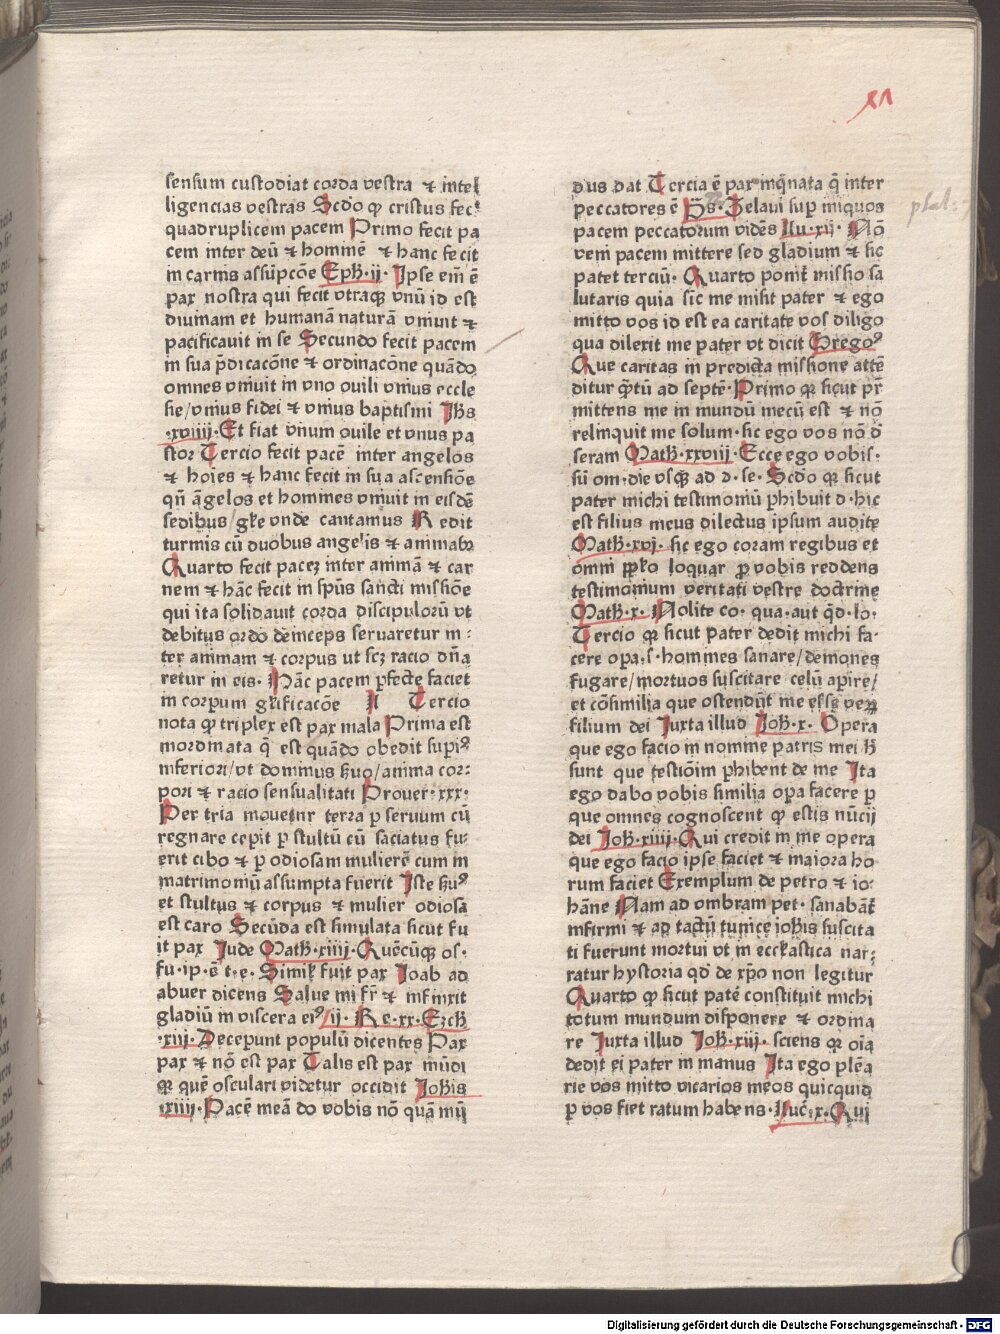 sensum custodiat corda vestra ⁊ intel
ligencias vestras Scdo ꝙ cristus fec᷑
quadruplicem pacem Primo fecit pa
cem inter deū ⁊ hominē ⁊ hanc fecit
in carnis assūpcōe Eph·ii· Ipse em̄ ē
pax nostra qui fecit vtraqꝫ vnū id est
diuinam et humanā naturā vniuit ⁊
pacificauit in se Secundo fecit pacem
in sua p̄dicacōne ⁊ ordinacōne quādo
omnes vniuit in vno ouili vnius eccle
sie/vnius fidei ⁊ vnius baptismi Ihs
·xviiij·Et fiat vnum ouile et vnus pa
stor Tercio fecit pacē inter angelos
⁊ hoīes ⁊ hanc fecit in sua ascensiōe
qn̄ āgelos et homines vniuit in eisdē
sedibus/gl̄e vnde cantamus Redit
turmis cū duobus angelis ⁊ animabꝫ
Quarto fecit pacez inter animā ⁊ car
nem ⁊ hāc fecit in sp̄us sancti missiōe
qui ita solidauit corda discipulorū vt
debitus ordo deinceps seruaretur in:
ter animam ⁊ corpus ut scꝫ racio dn̄a
retur in eis· Hāc pacem ꝑfecte faciet
in corpum glīficacōe Tercio
nota ꝙ triplex est pax mala Prima est
inordinata q̄ est quādo obedit supiꝰ
inferiori/vt dominus ẜuo/anima cor:
pori ⁊ racio sensualitati Prouer·xxx·
Per tria mouetur terra ꝑ seruum cū
regnare cepit ꝑ stultū cū saciatus fu:
erit cibo ⁊ ꝑ odiosam mulierē cum in
matrimoniū assumpta fuerit Iste ẜuꝰ
et stultus ⁊ corpus ⁊ mulier odiosa
est caro Secūda est simulata sicut fu
it pax Iude Math·xiiij·Quēcūqꝫ os·
fu·ip·ē t·e·Simił fuit pax Ioab ad
abuer dicens Salue mi fr̄ ⁊ infinxit
gladiū in viscera eiꝰ/ij·Re·xx·Ezch
·xiij·Deceperunt populū dicentes Pax
pax ⁊ nō est pax Talis est pax mūdi
ꝙ quē osculari videtur occidit Iohis
ixiiij·Pacē meā do vobis nō quā mū
xi
dus dat Tercia ē pax inq̄nata q̄ inter
peccatores ē P̄s·Zelaui suꝑ iniquos
pacem peccatorum vidēs Lu·xij· Nō
veni pacem mittere sed gladium ⁊ sic
patet terciū· Quarto ponit᷑ missio sa
lutaris quia sic me misit pater ⁊ ego
mitto vos id est ea caritate vos diligo
qua dilexit me pater vt dicit Gregoꝰ
Que caritas in predicta missione attē
ditur q̄tū ad septē·Primo ꝙ sicut pr̄
mittens me in mundū mecū est ⁊ nō
relinquit me solum·sic ego vos nō d̄
seram Math·xxviij·Ecce ego vobis·
sū om·die vsqꝫ ad ɔ·se·Scdo ꝙ sicut
pater michi testimoniū ꝑhibuit d·hic
est filius meus dilectus ipsum audite
Math·xvj·sic ego coram regibus et
omni pplo loquar ꝑ vobis reddens
testimonium veritati vestre doctrine
Math·x·Nolite co·qua·aut q̄d·lo·
Tercio ꝙ sicut pater dedit michi fa·
cere opa·s·homines sanare/demones
fugare/mortuos suscitare celū apire/
et cōsimilia que ostendūt me esse veꝝ
filium dei Iuxta illud Joh·x· Opera
que ego facio in nomine patris mei h̄
sunt que testioīm ꝑhibent de me Ita
ego dabo vobis similia opa facere ꝑ
que omnes cognoscent ꝙ estis nūcij
dei Joh·xiiij·Qui credit in me opera
que ego facio ipse faciet ⁊ maiora ho
rum faciet Exemplum de petro ⁊ io·
hāne Nam ad ombram pet·sanabāt᷑
infirmi ⁊ ad tactū tunice iohīs suscita
ti fuerunt mortui vt in eccłiastica nar:
ratur hystoria qd̄ de xp̄o non legitur
Quarto ꝙ sicut patē constituit michi
totum mundum disponere ⁊ ordina
re Iuxta illud Joh·xiij·sciens ꝙ oīa
dedit ei pater in manus Ita ego plēa
rie vos mitto vicarios meos quicquid
ꝑ vos fiet ratum habens·Luc·x·Qui
Digitalisierung gefördert durch die Deutsche Forschungsgemeinschaft - DFG